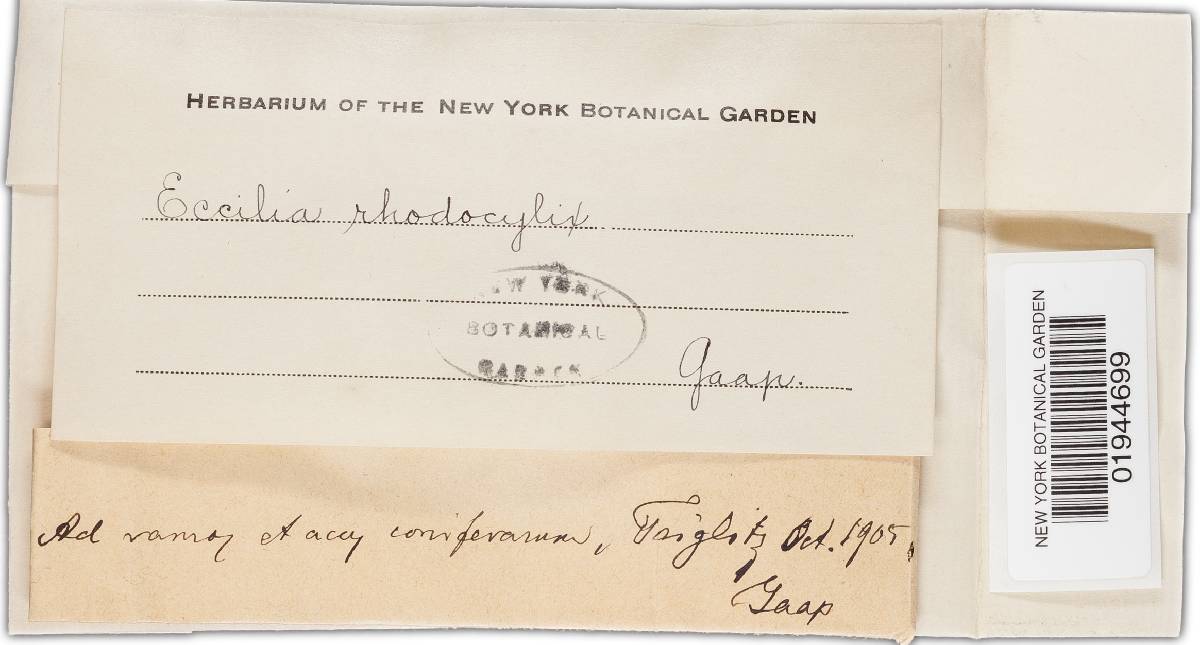 HERBARIUM OF THE NEW YORK BOTANICAL GARDEN
Eccilia rhodocylix
NEW YORK
BOTANICAL
GARDEN
Gaap.
Ad ramos et acus coniferarum, Triglitz Oct. 1905,
Jaap
NEW YORK BOTANICAL GARDEN
01944699